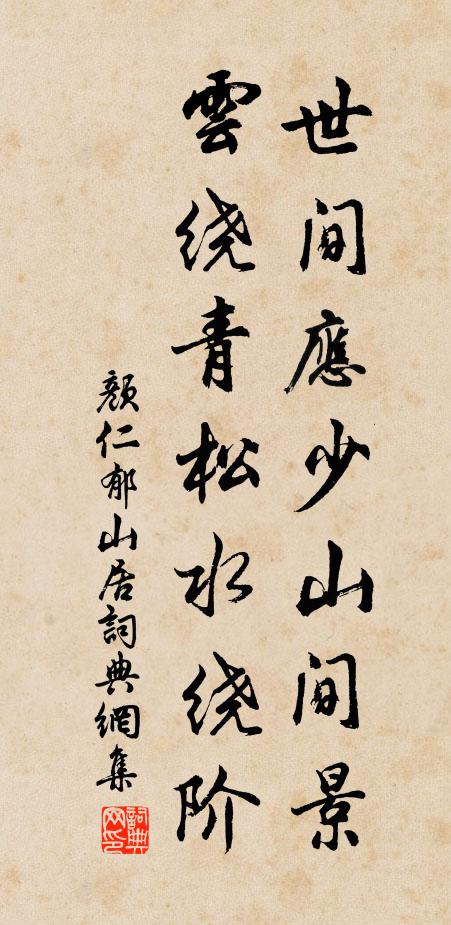 世间應少山间景
雲绕青松水绕阶
颜仁郁山居詞典網集
詞典网印